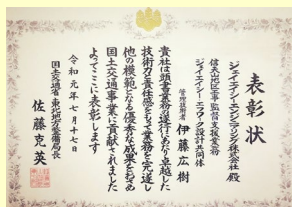 表彰状
ジェイアール・エンジニアリング株式会社 殿
信夫地区工事監督支援業務
ジェイエイシー・エフワーク設計共同体
管理技術者 伊藤広樹
貴社は頭書業務の遂行にあたり卓越した
技術力と責任感をもって業務を完遂し
他の模範となる優秀な成果をおさめ
国土交通事業に貢献されました
よってここに表彰します
令和元年七月十七日
国土交通省 東北地方整備局長
佐藤克英